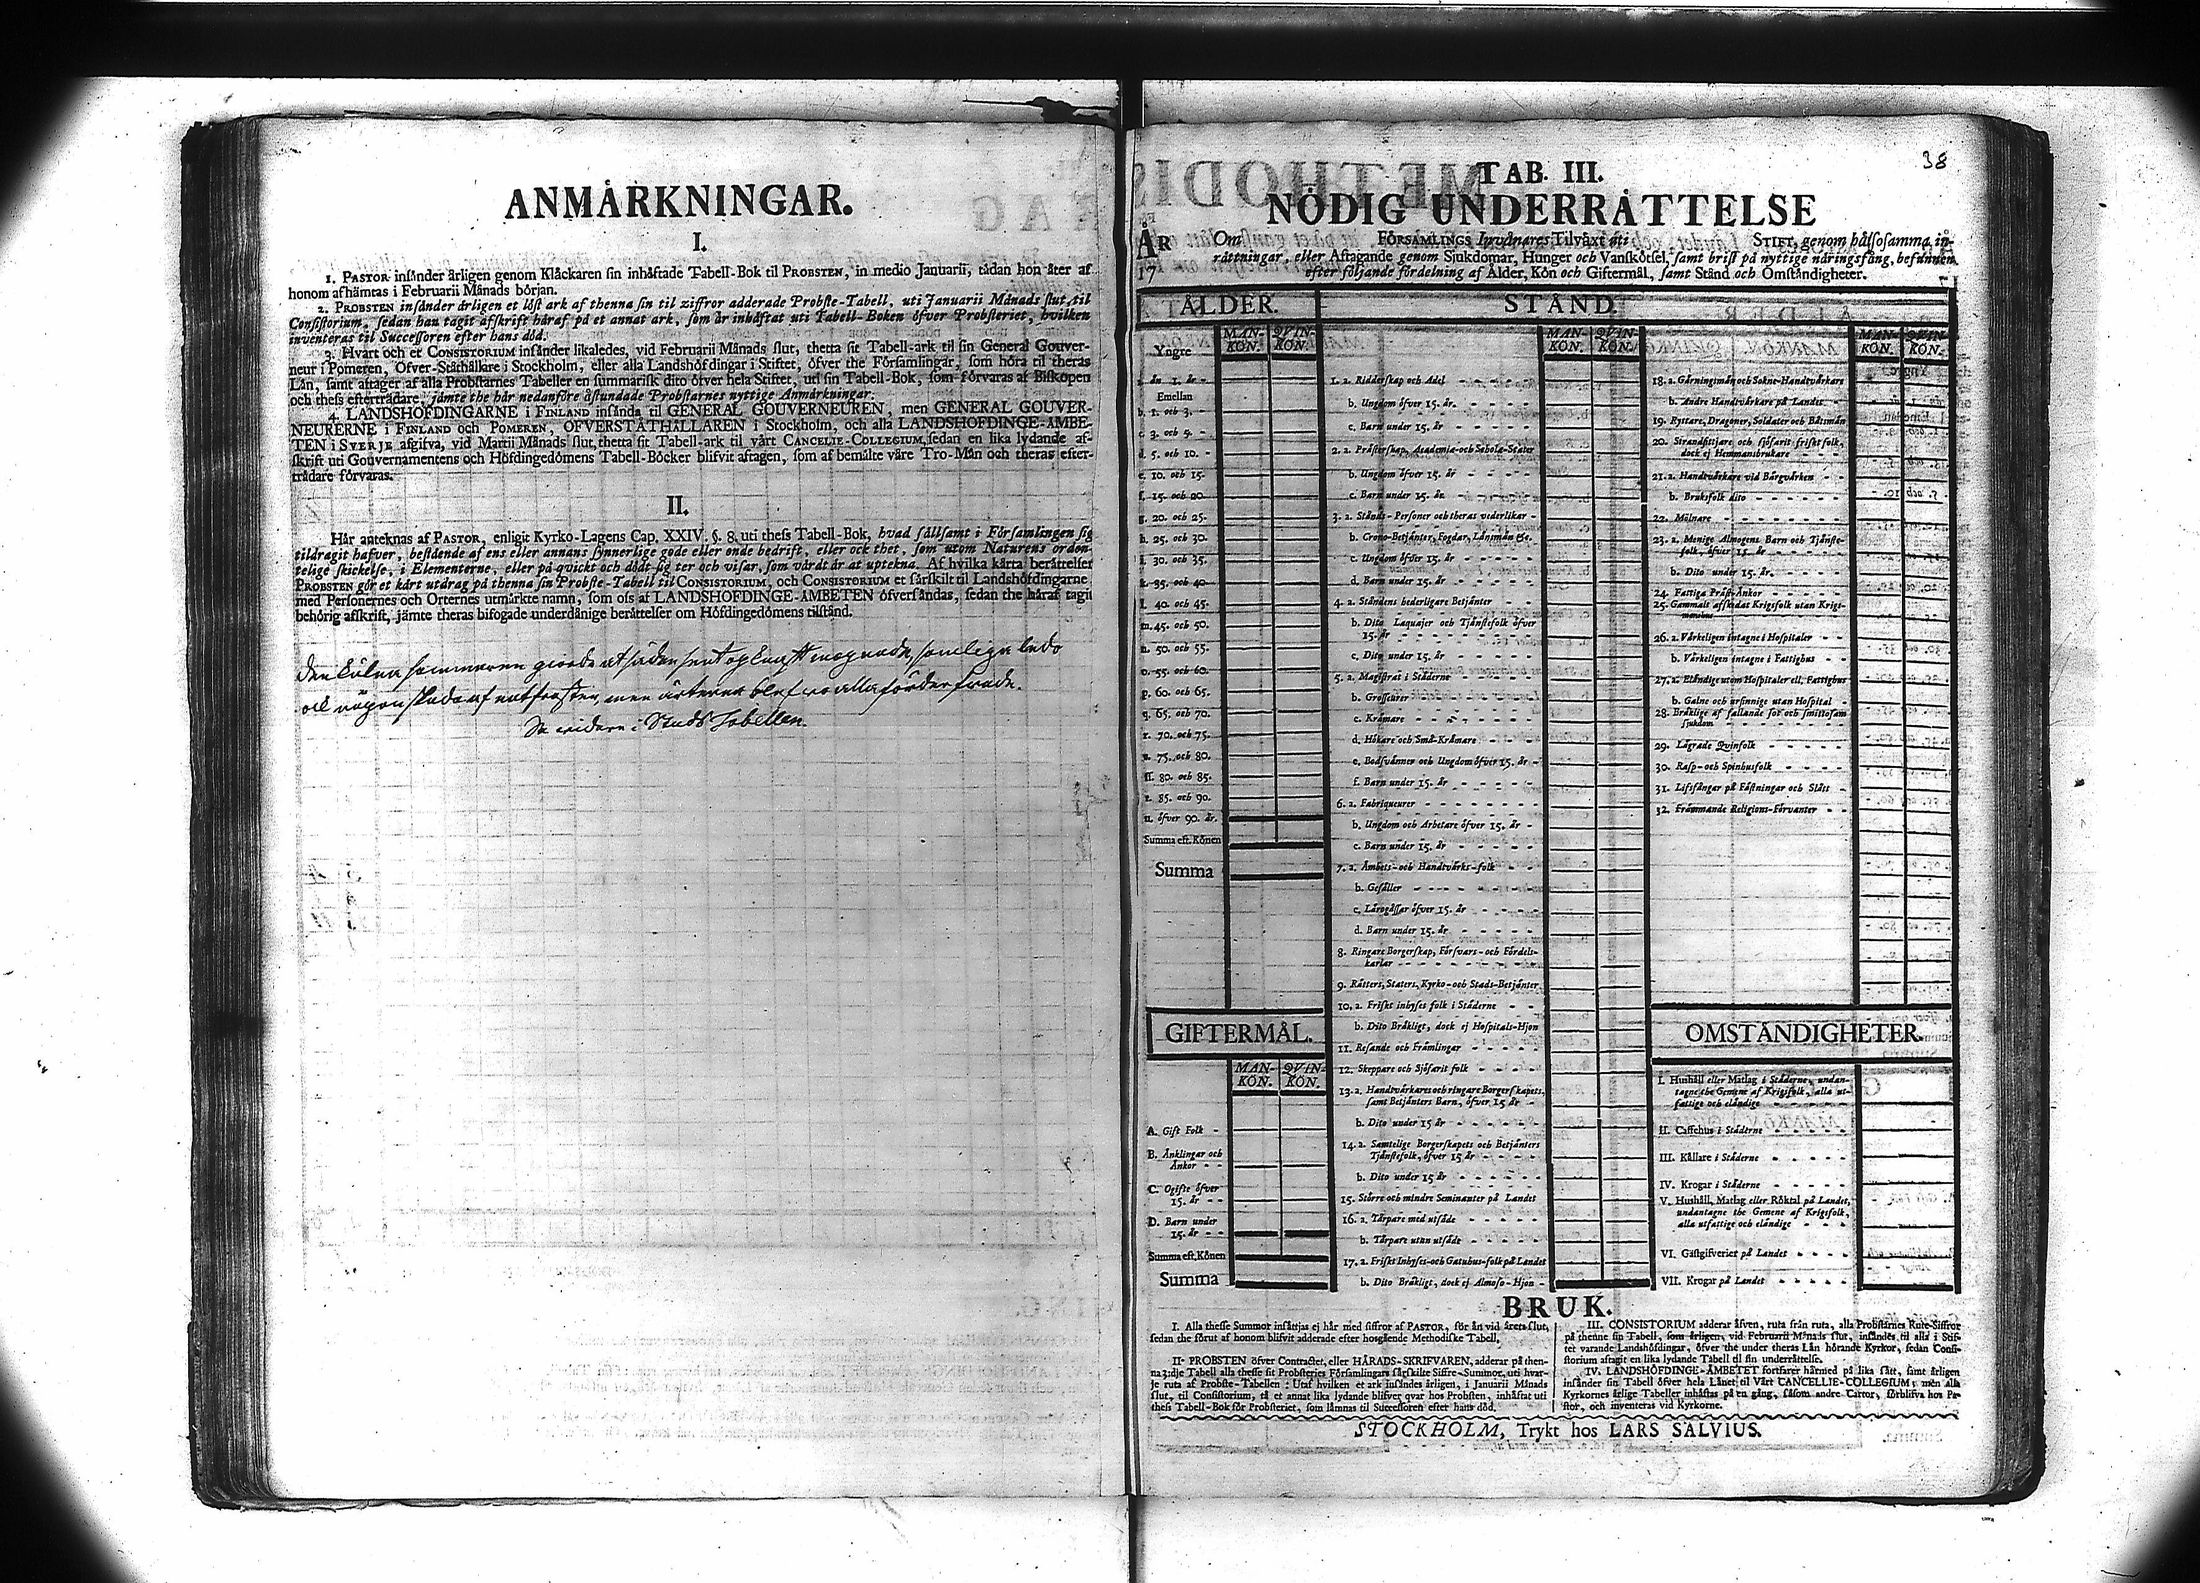 ANMÅRKNINGAR.
I.
1. PASTOR insånder årligen genom Klåckaren sin inhåftade Tabell-Bok til PROBSTEN, in medio Januarii, tådan hon åter af
honom afhämtas i Februarii Månads början.
2. PROBSTEN insånder årligen et löst ark af thenna sin til ziffror adderade Probste-Tabell, uti Januarii Månads slut, til
Consistorium, sedan han tagit afskrift håraf på et annat ark, som år inhåftat uti Tabell-Boken öfver Probsteriet, hvilken
inventeras til Successoren efter hans död.
3. Hvart och et CONSISTORIUM insånder likaledes, vid Februarii Månads slut, thetta sit Tabell-ark til sin General Gouver-
neur i Pomeren, Öfver-Ståthållare i Stockholm, eller alla Landshöfdingar i Stiftet, öfver the Församlingar, som höra til theras
Lån, samt aftager af alla Probstarnes Tabeller en summarisk dito öfver hela Stiftet, uti sin Tabell-Bok, som förvaras af Biskopen
och thess eftertrådare, jåmte the hår nedanföre åstundade Probstarnes nyttige Anmårkningar.
4. LANDSHÖFDINGARNE i FINLAND insånda til GENERAL GOUVERNEUREN, men GENERAL GOUVER-
NEURERNE i FINLAND och POMEREN, ÖFVERSTÅTHÅLLAREN i Stockholm, och alla LANDSHÖFDINGE-ÅMBE-
TEN i SVERJE afgifva, vid Martii Månads slut, thetta sit Tabell-ark til vårt CANCELIE-COLLEGIUM, sedan en lika lydande af-
skrift uti Gouvernamentens och Höfdingedömens Tabell-Böcker blifvit aftagen, som af bemålte våre Tro-Mån och theras efter-
trådare förvaras.
II.
Hår anteknas af PASTOR, enligit Kyrko-Lagens Cap. XXIV. §. 8. uti thess Tabell-Bok, hvad sållsamt i Församlingen sig
tildragit hafver, bestående af ens eller annans synnerlige gode eller onde bedrift, eller ock thet, som utom Naturens orden-
telige skickelse, i Elementerne, eller på qvickt och dödt sig ter och visar, som vårdt år at uptekna. Af hvilka kårta beråttelser
PROBSTEN gör et kårt utdrag på thenna sin Probste-Tabell til CONSISTORIUM, och CONSISTORIUM et sårskilt til Landshöfdingarne
med Personernes och Orternes utmårkte namn, som oss af LANDSHÖFDINGE-ÅMBETEN öfversåndas, sedan the håraf tagit
behörig afskrift, jåmte theras bifogade underdånige beråttelser om Höfdingedömens tilstånd.
Den kulna sommaren giorde at säden sent
skada af nattfroster, men ärterna blefvo alla förderfvade.
Se vidare i Stads Tabellen.
38
TAB. III.
NÖDIG UNDERRÅTTELSE
ÅR Om FÖRSAMLINGS Invånares Tilvåxt uti STIFT, genom hålsosamma in-
17 råttningar, eller Aftagande genom Sjukdomar, Hunger och Vanskötsel, samt brist på nyttige näringsfång, befunnen
efter följande fördelning af Ålder, Kön och Giftermål, samt Stånd och Omståndigheter.
ÅLDER.
MAN-KÖN. QVIN-KÖN.
Yngre
ån 1. år
Emellan
b. 1. och 3.
c. 3. och 5.
d. 5. och 10.
e. 10. och 15.
f. 15. och 20.
g. 20. och 25.
h. 25. och 30.
i. 30. och 35.
k. 35. och 40.
l. 40. och 45.
m. 45. och 50.
n. 50. och 55.
o. 55. och 60.
p. 60. och 65.
q. 65. och 70.
r. 70. och 75.
s. 75. och 80.
ss. 80. och 85.
t. 85. och 90.
u. öfver 90. år.
Summa eft. Könen
Summa
GIFTERMÅL.
MAN-KÖN. QVIN-KÖN.
A. Gift Folk
B. Änklingar och
Änkor
C. Ogifte öfver
15. år
D. Barn under
15. år
Summa eft. Könen
Summa
STÅND.
MAN-KÖN. QVIN-KÖN.
1. a. Ridderskap och Adel
b. Ungdom öfver 15. år.
c. Barn under 15. år
2. a. Prästerskap, Academiæ-och Scholæ-Stater
b. Ungdom öfver 15. år
c. Barn under 15. år
3. a. Stånds-Personer och theras vederlikar
b. Crono-Betjänter, Fogdar, Länsmän &c.
c. Ungdom öfver 15. år
d. Barn under 15. år
4. a. Ståndens hederligare Betjänter
b. Dito Laquajer och Tjänstefolk öfver
15. år
c. Dito under 15. år
5. a. Magistrat i Ståderne
b. Grosseurer
c. Kråmare
d. Hökare och Små-Kråmare
e. Bodsvänner och Ungdom öfver 15. år
f. Barn under 15. år
6. a. Fabriqueurer
b. Ungdom och Arbetare öfver 15. år
c. Barn under 15. år
7. a. Åmbets-och Handtvårks-folk
b. Gesåller
c. Lårogåssar öfver 15. år
d. Barn under 15. år
8. Ringare Borgerskap, Försvars-och Fördels-
karlar
9. Råtters, Staters, Kyrko-och Stads-Betjänter
10. a. Friskt inhyses folk i Ståderne
b. Dito Bråkligt, dock ej Hospitals-Hjon
11. Resande och Främlingar
12. Skeppare och Sjöfarit folk
13. a. Handtvårkares och ringare Borgerskapets,
samt Betjänters Barn, öfver 15 år
b. Dito under 15 år
14. a. Samtelige Borgerskapets och Betjänters
Tjänstefolk, öfver 15 år
b. Dito under 15 år
15. Större och mindre Seminanter på Landet
16. a. Torpare med utsåde
b. Torpare utan utsåde
17. a. Friskt Inhyses-och Gatuhus-folk på Landet
b. Dito Bråkligt, dock ej Almoso-Hjon
MAN-KÖN. QVIN-KÖN.
18. a. Gårningsmän och Sokne-Handtvårkare
b. Andre Handtvårkare på Landet
19. Ryttare, Dragoner, Soldater och Båtsmån
20. Strandsittjare och sjöfarit friskt folk,
dock ej Hemmansbrukare
21. a. Handtvårkare vid Bårgvårken
b. Bruksfolk dito
22. Mölnare
23. a. Menige Almogens Barn och Tjänste-
folk, öfver 15. år
b. Dito under 15. år.
24. Fattiga Präst-Änkor
25. Gammalt afskedat Krigsfolk utan Krigs-
26. a. Vårkeligen intagne i Hospitaler
b. Vårkeligen intagne i Fattighus
27. a. Eländige utom Hospitaler ell. Fattighus
b. Galne och ursinnige utan Hospital
28. Bråklige af fallande sot och smittosam
sjukdom
29. Lägrade Qvinfolk
30. Rasp-och Spinhusfolk
31. Lifsfångar på Fåstningar och Slått
32. Främmande Religions-Förvanter
OMSTÅNDIGHETER.
I. Hushåll eller Matlag i Ståderne, undan-
tagne the Gemene af Krigsfolk, alla ut-
fattige och eländige
II. Caffehus i Ståderne
III. Kållare i Ståderne
IV. Krogar i Ståderne
V. Hushåll, Matlag eller Röktal på Landet,
undantagne the Gemene af Krigsfolk,
alla utfattige och eländige
VI. Gåstgifverier på Landet
VII. Krogar på Landet
BRUK.
I. Alla thesse Summor insåttjas ej hår med siffror af PASTOR, för ån vid årets slut,
sedan the förut af honom blifvit adderade efter hosgående Methodiske Tabell.
II. PROBSTEN öfver Contractet, eller HÄRADS-SKRIFVAREN, adderar på then-
na 3:dje Tabell alla thesse sit Probsteries Församlingars sårskilte Siffre-Summor, uti hvar-
je ruta af Probste-Tabellen: Utaf hvilken et ark insåndes årligen, i Januarii Månads
slut, til Consistorium, så et annat lika lydande blifver qvar hos Probsten, inhåftat uti
thess Tabell-Bok för Probsteriet, som låmnas til Successoren efter hans död.
III. CONSISTORIUM adderar åfven, ruta från ruta, alla Probstarnes Rute-Siffror
på thenne sin Tabell, som årligen, vid Februarii Månads slut, insåndes til alla i Stif-
tet varande Landshöfdingar, öfver the under theras Lån hörande Kyrkor, sedan Consi-
storium aftagit en lika lydande Tabell til sin underråttelse.
IV. LANDSHÖFDINGE-ÅMBETET fortfarer hårmed på lika sått, samt årligen
insånder sin Tabell öfver hela Lånet til Vårt CANCELLIE-COLLEGIUM; men alla
Kyrkornes årlige Tabeller inhåftas på en gång, såsom andre Cartor, förblifva hos Pa-
stor, och inventeras vid Kyrkorne.
STOCKHOLM, Trykt hos LARS SALVIUS.